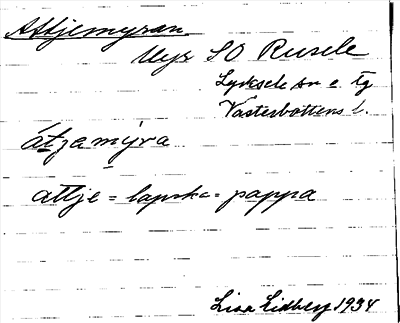 Attjemyran
Myr SO Rusele
Lycksele sn o. tg
Västerbottens l.
átjamýra
attje = lapska = pappa
Lisa Lidberg 1934